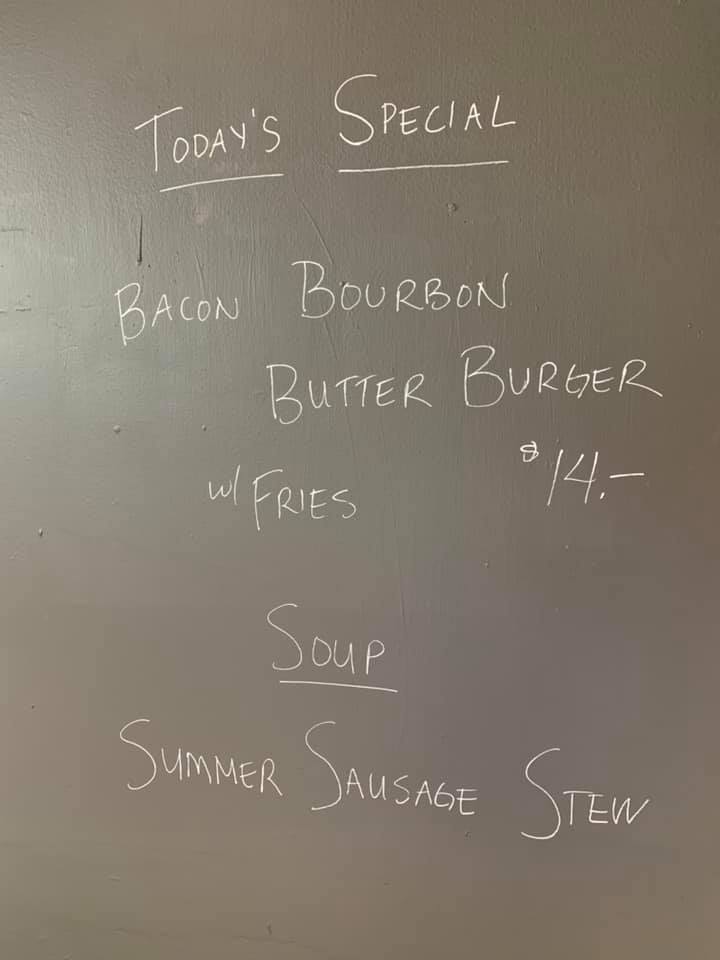 TODAY'S SPECIAL
BACON BOURBON
BUTTER BURGER
w/ FRIES $14.–
SOUP
SUMMER SAUSAGE STEW